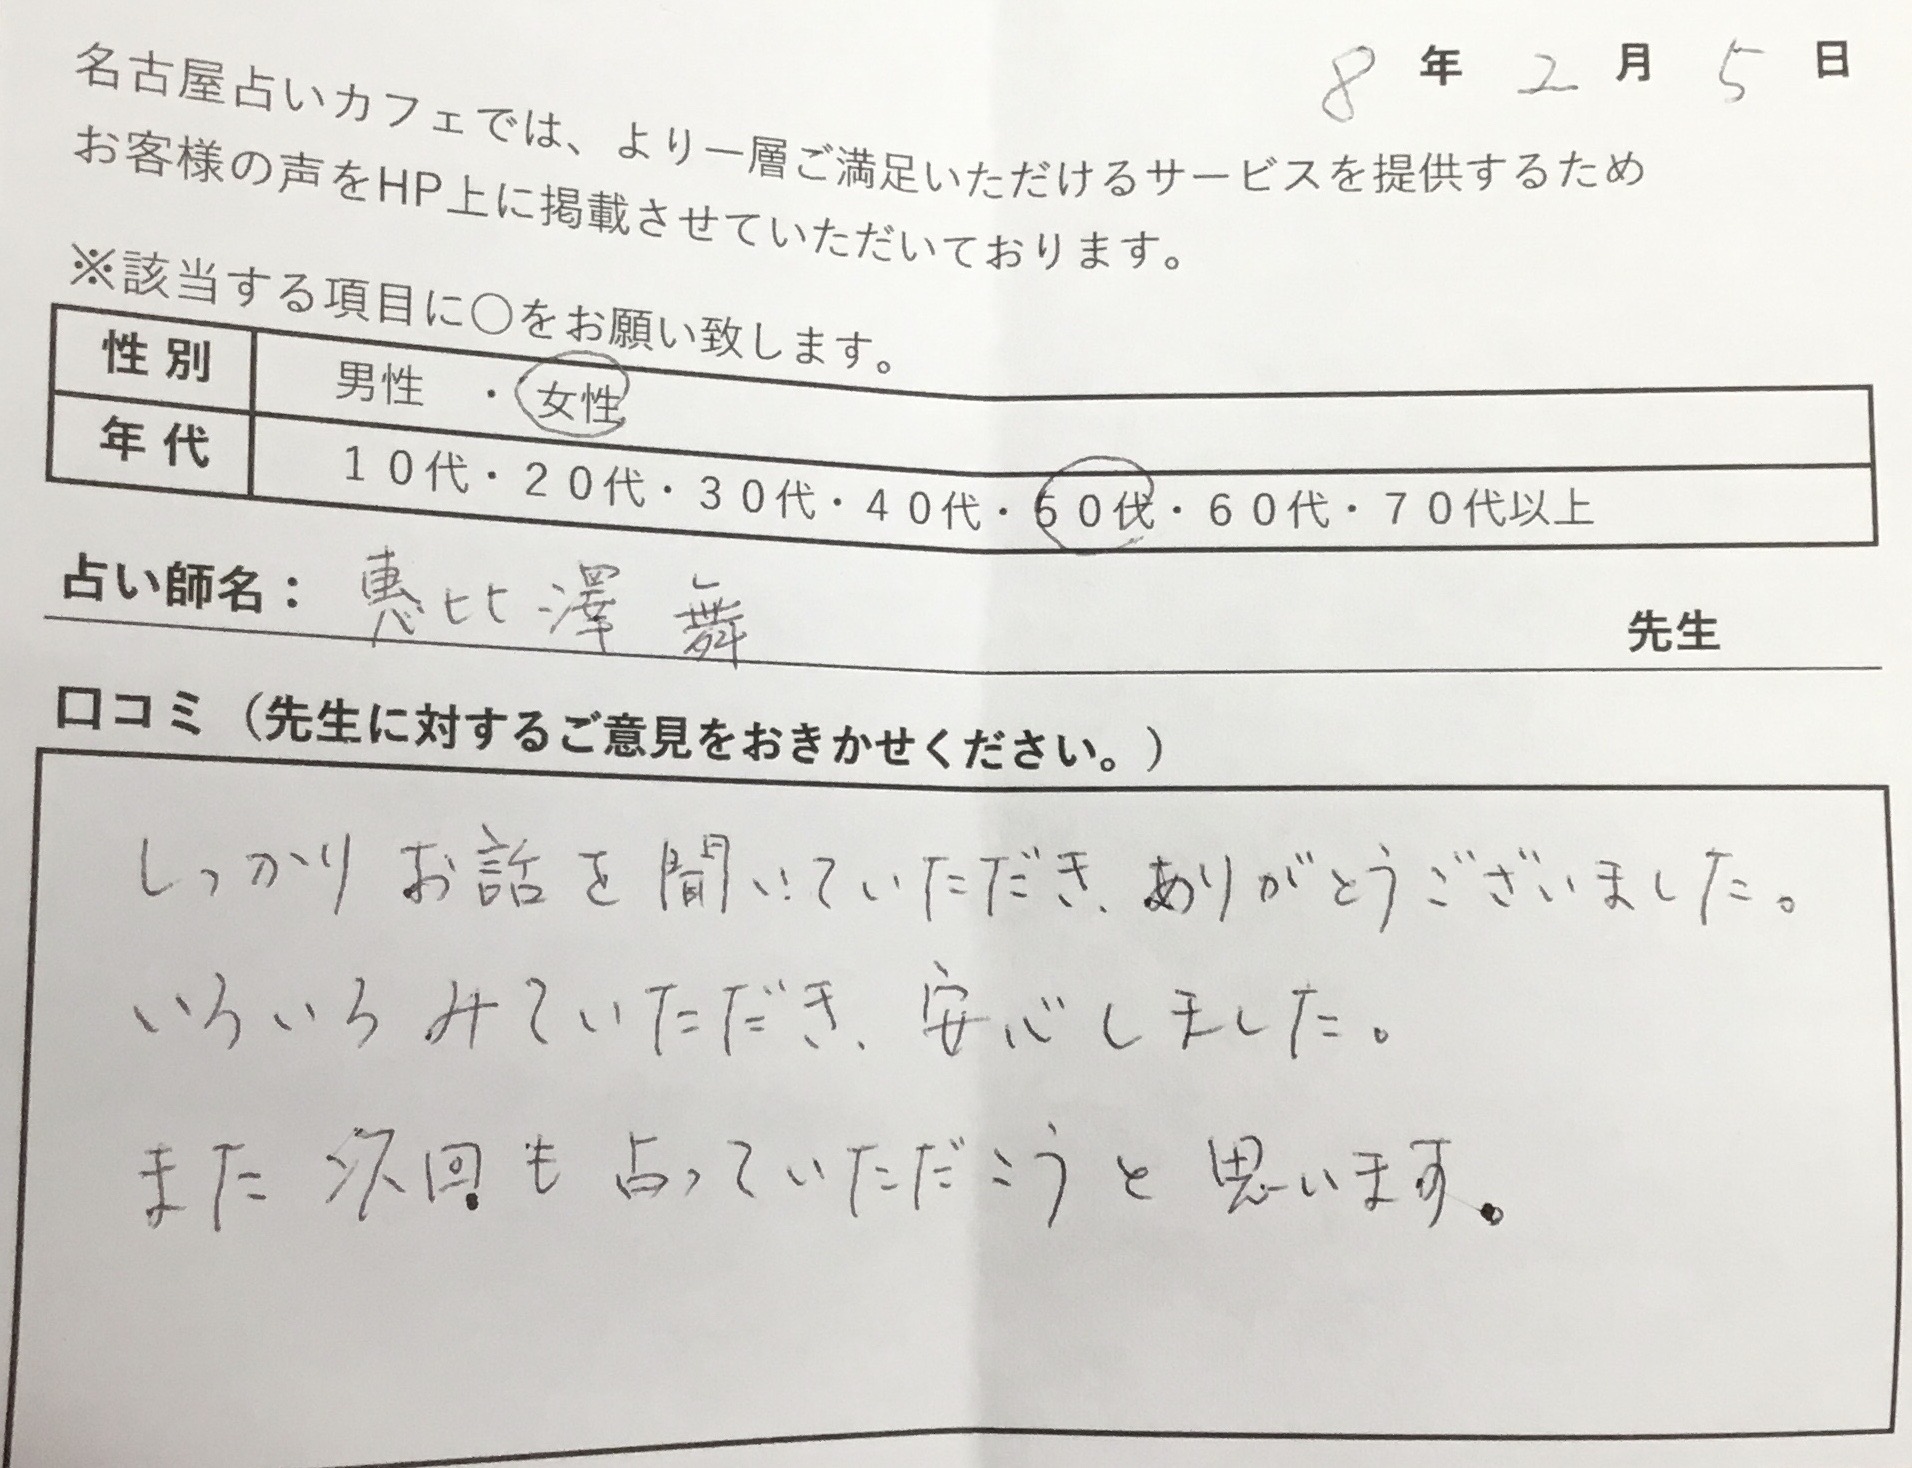 8年2月5日
名古屋占いカフェでは、より一層ご満足いただけるサービスを提供するため
お客様の声をHP上に掲載させていただいております。
※該当する項目に○をお願い致します。
性別 男性 ・ 女性
年代 10代・20代・30代・40代・50代・60代・70代以上
占い師名： 恵比澤 舞 先生
口コミ（先生に対するご意見をおきかせください。）
しっかりお話を聞いていただき、ありがとうございました。
いろいろみていただき、安心しました。
また次回も占っていただこうと思います。